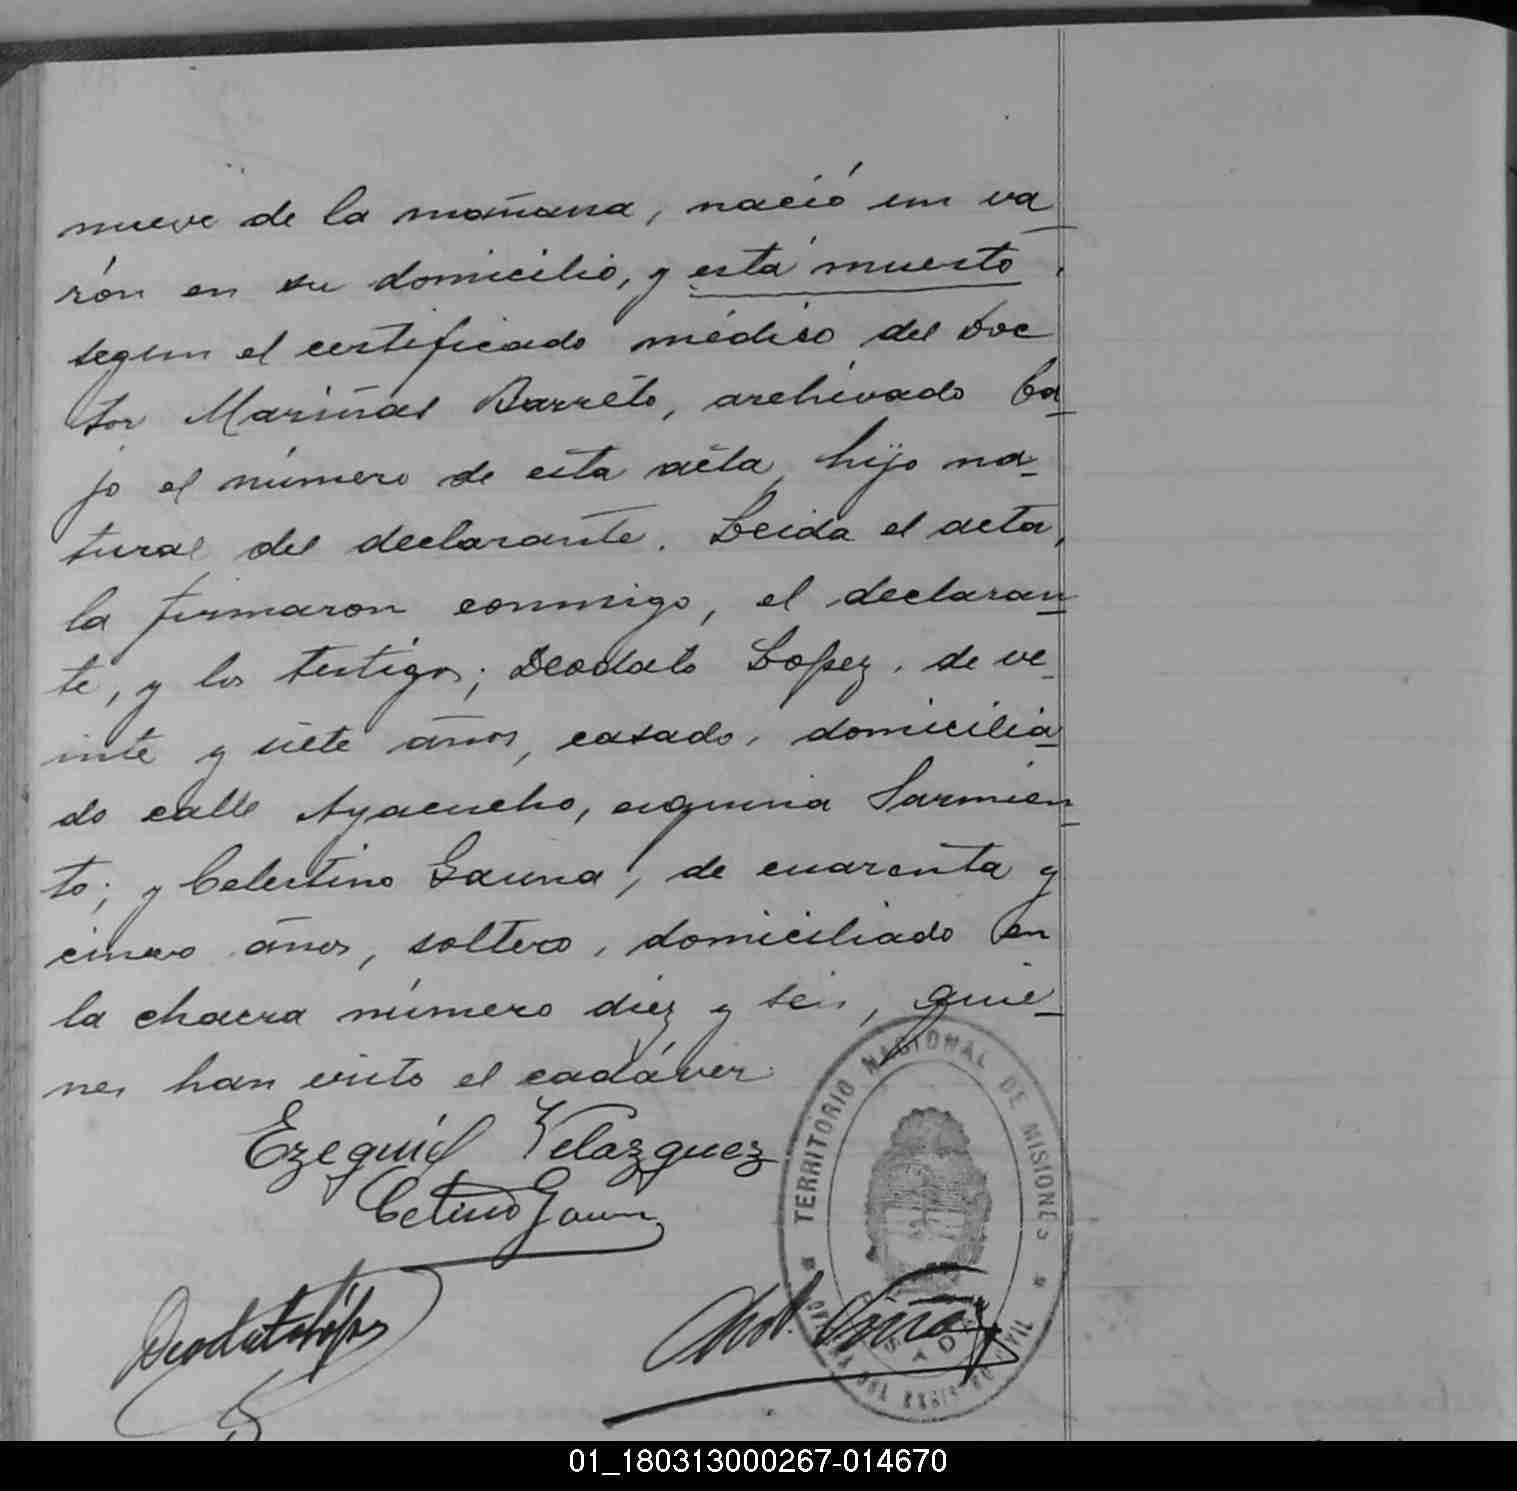 nueve de la mañana, nació un va-
rón en su domicilio, y está muerto.
segun el certificado médico del Doc
tor Mariñas Barréto, archivado ba-
jo el número de esta acta, hijo na-
tural del declarante. Leida el acta,
la firmaron conmigo, el declaran-
te, y los testigos; Deodato Lopez, de ve-
inte y siete años, casado, domicilia-
do calle Ayacucho, esquina Sarmien-
to; y Celestino Gauna, de cuarenta y
cinco años, soltero, domiciliado en
la chacra número diez y seis, quie-
nes han visto el cadáver.
Ezequiel Velazquez
Deodato López
TERRITORIO NACIONAL DE MISIONES
01_180313000267-014670